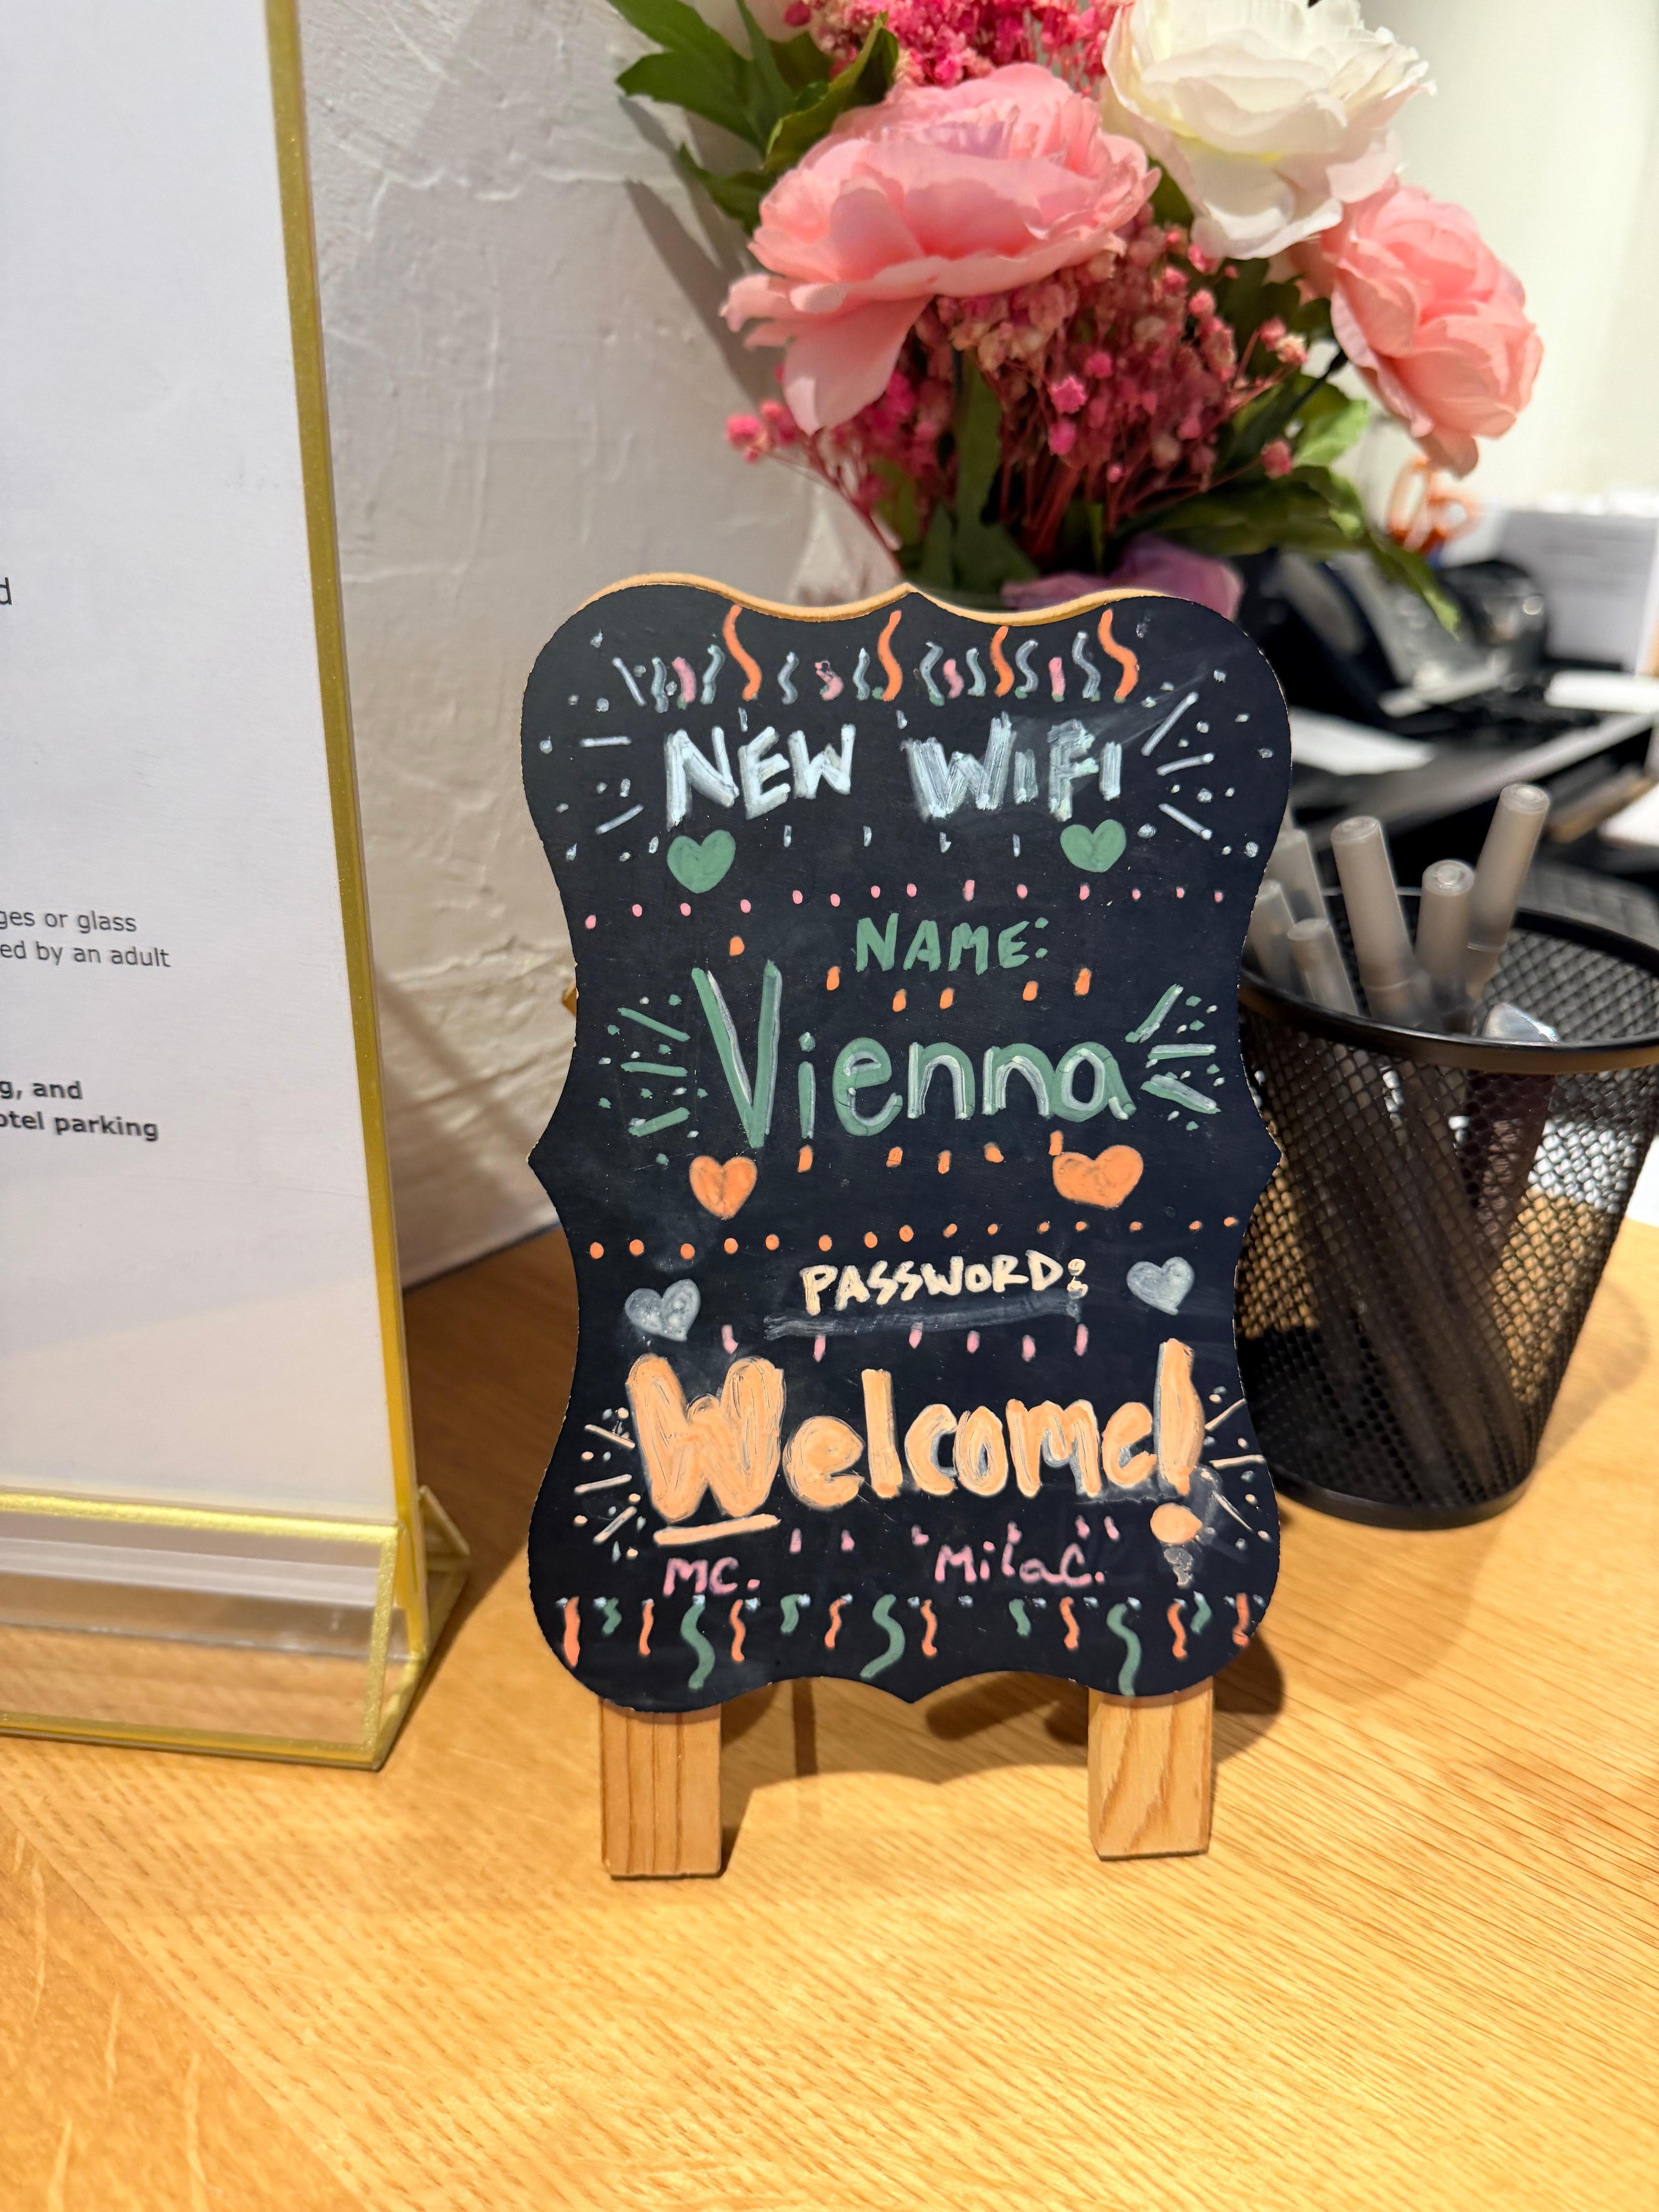 d
ges or glass
ed by an adult
g, and
otel parking
NEW WiFi
NAME:
Vienna
PASSWORD:
Welcome!
MC. MilaC.